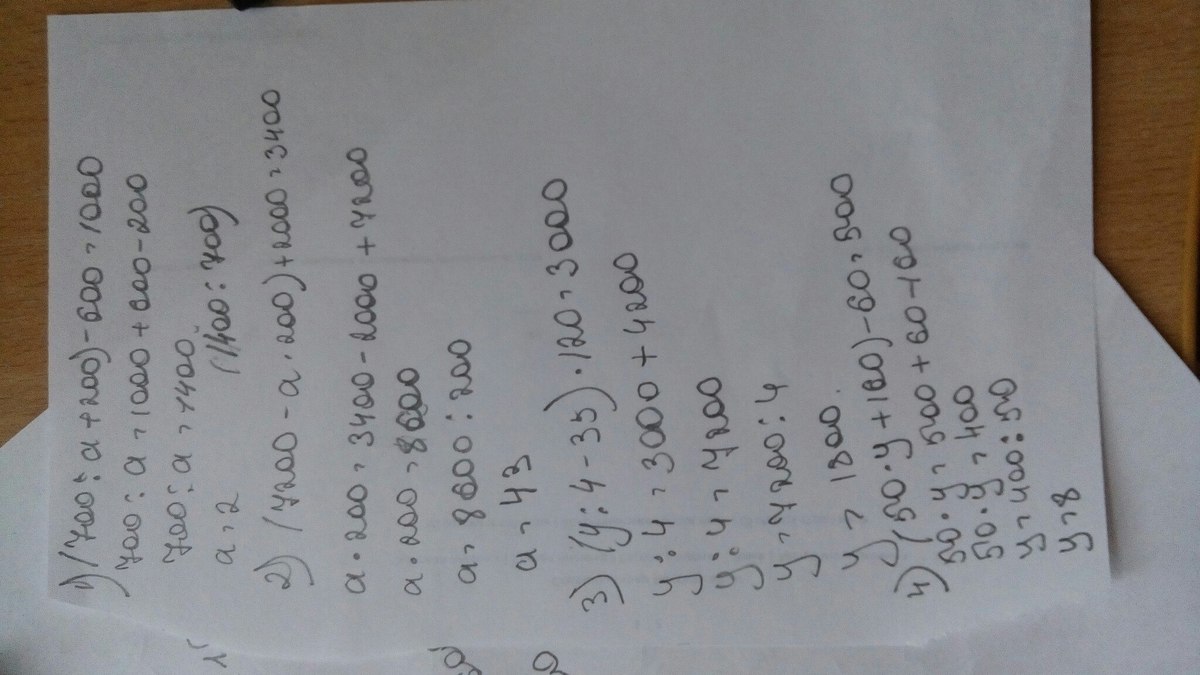 1) (700 : a + 200) - 600 = 1000
700 : a = 1000 + 600 - 200
700 : a = 1400
a = 2 (1400 : 700)
2) (7200 - a · 200) + 2000 = 3400
a · 200 = 3400 - 2000 + 7200
a · 200 = 8600
a = 8600 : 200
a = 43
3) (y : 4 - 35) · 120 = 3000
y : 4 = 3000 + 4200
y : 4 = 7200
y = 7200 : 4
y = 1800
4) (50 · y + 160) - 60 = 500
50 · y = 500 + 60 - 160
50 · y = 400
y = 400 : 50
y = 8